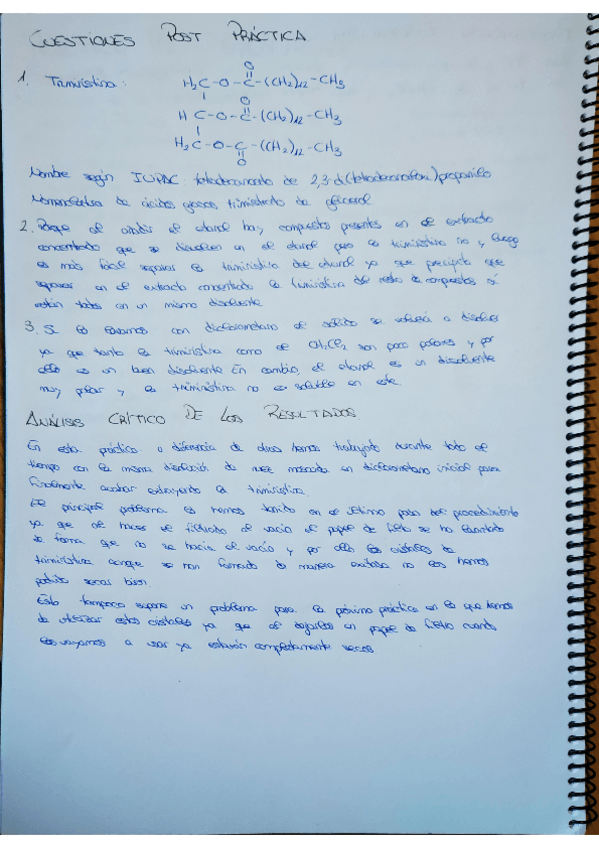 CUESTIONES POST PRÁCTICA
1. Trimiristina:
O
H₂C-O-C-(CH₂)₁₂-CH₃
O
HC-O-C-(CH₂)₁₂-CH₃
H₂C-O-C-(CH₂)₁₂-CH₃
O
Nombre según IUPAC: tetradecanoato de 2,3-di(tetradecanoiloxi)propanilo
Nomenclatura de ácidos grasos, trimiristato de glicerol
2. Porque al añadir el etanol hay compuestos presentes en el extracto
concentrado que se disuelven en el etanol pero la trimiristina no y luego
es más fácil separar la trimiristina del etanol ya que precipita que
separar en el extracto concentrado la trimiristina del resto de compuestos si
están todos en un mismo disolvente
3. Si lo lavamos con diclorometano el sólido se volverá a disolver
ya que tanto la trimiristina como el CH₂Cl₂ son poco polares y por
ello es un buen disolvente. En cambio, el etanol es un disolvente
muy polar y la trimiristina no es soluble en este.
ANÁLISIS CRÍTICO DE LOS RESULTADOS
En esta práctica a diferencia de otras hemos trabajado durante todo el
tiempo con la misma disolución de nuez moscada en diclorometano inicial para
finalmente acabar extrayendo la trimiristina.
El principal problema lo hemos tenido en el último paso del procedimiento
ya que al hacer el filtrado al vacío el papel de filtro se ha levantado
de forma que no se hacía el vacío y por ello los cristales de
trimiristina aunque se han formado de manera exitosa no los hemos
podido secar bien.
Esto tampoco supone un problema para la próxima práctica en la que hemos
de utilizar estos cristales ya que al dejarlos en papel de filtro cuando
los vayamos a usar ya estarán completamente secos